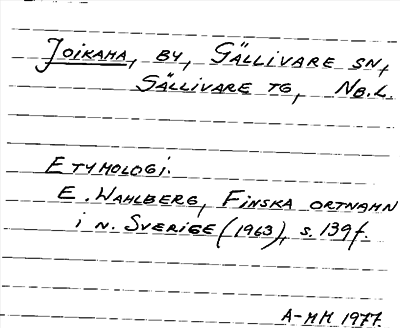 JOIKAMA, BY, GÄLLIVARE SN,
GÄLLIVARE TG, NB.L.
ETYMOLOGI.
E. WAHLBERG, FINSKA ORTNAMN
i N. SVERIGE (1963), s. 139f.
A-MM 1977.